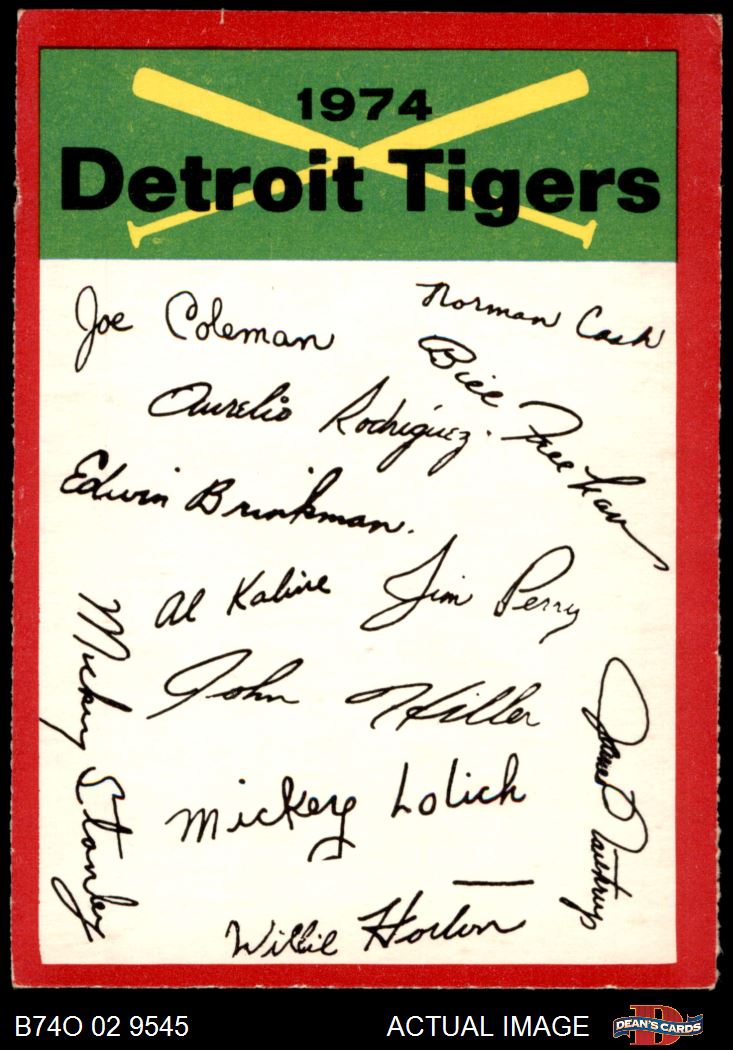 1974
Detroit Tigers
Joe Coleman
Norman Cash
Aurelio Rodriguez.
Bill Freehan
Edwin Brinkman.
Al Kaline
Jim Perry
Mickey Stanley
John Hiller
James Northrup
Mickey Lolich
Willie Horton
B74O 02 9545
ACTUAL IMAGE
D
DEAN'S CARDS